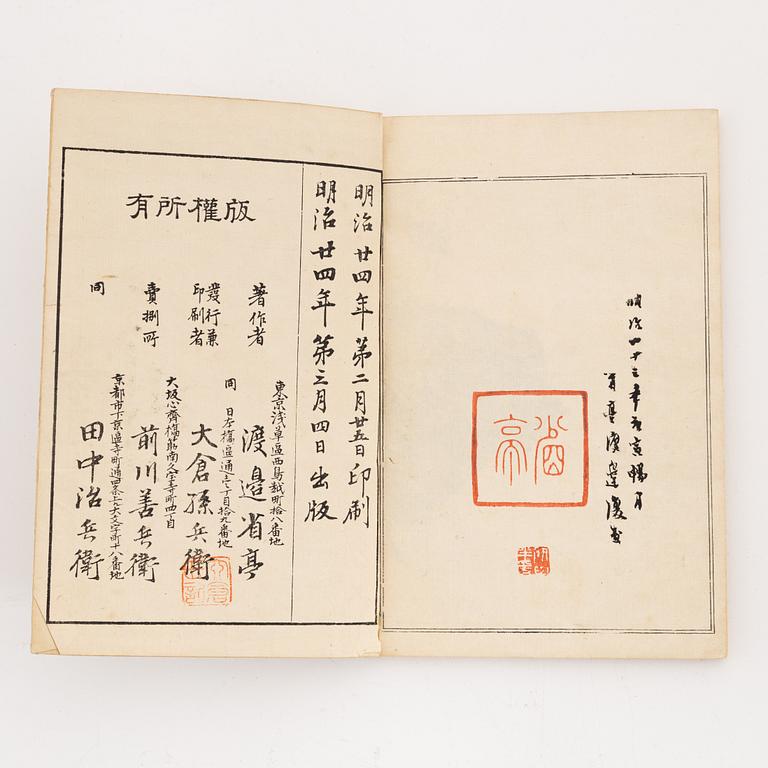 明治廿四年第二月廿五日印刷
明治廿四年第三月四日出版
版權所有
著作者
東京浅草區西鳥越町拾八番地
渡邉省亭
發行兼
印刷者
同 日本橋區通壱丁目拾九番地
大倉孫兵衛
賣捌所
大坂心齋橋筋南久宝寺町四丁目
前川善兵衛
同
京都市下京區寺町通四条上大文字町十八番地
田中治兵衛
省亭